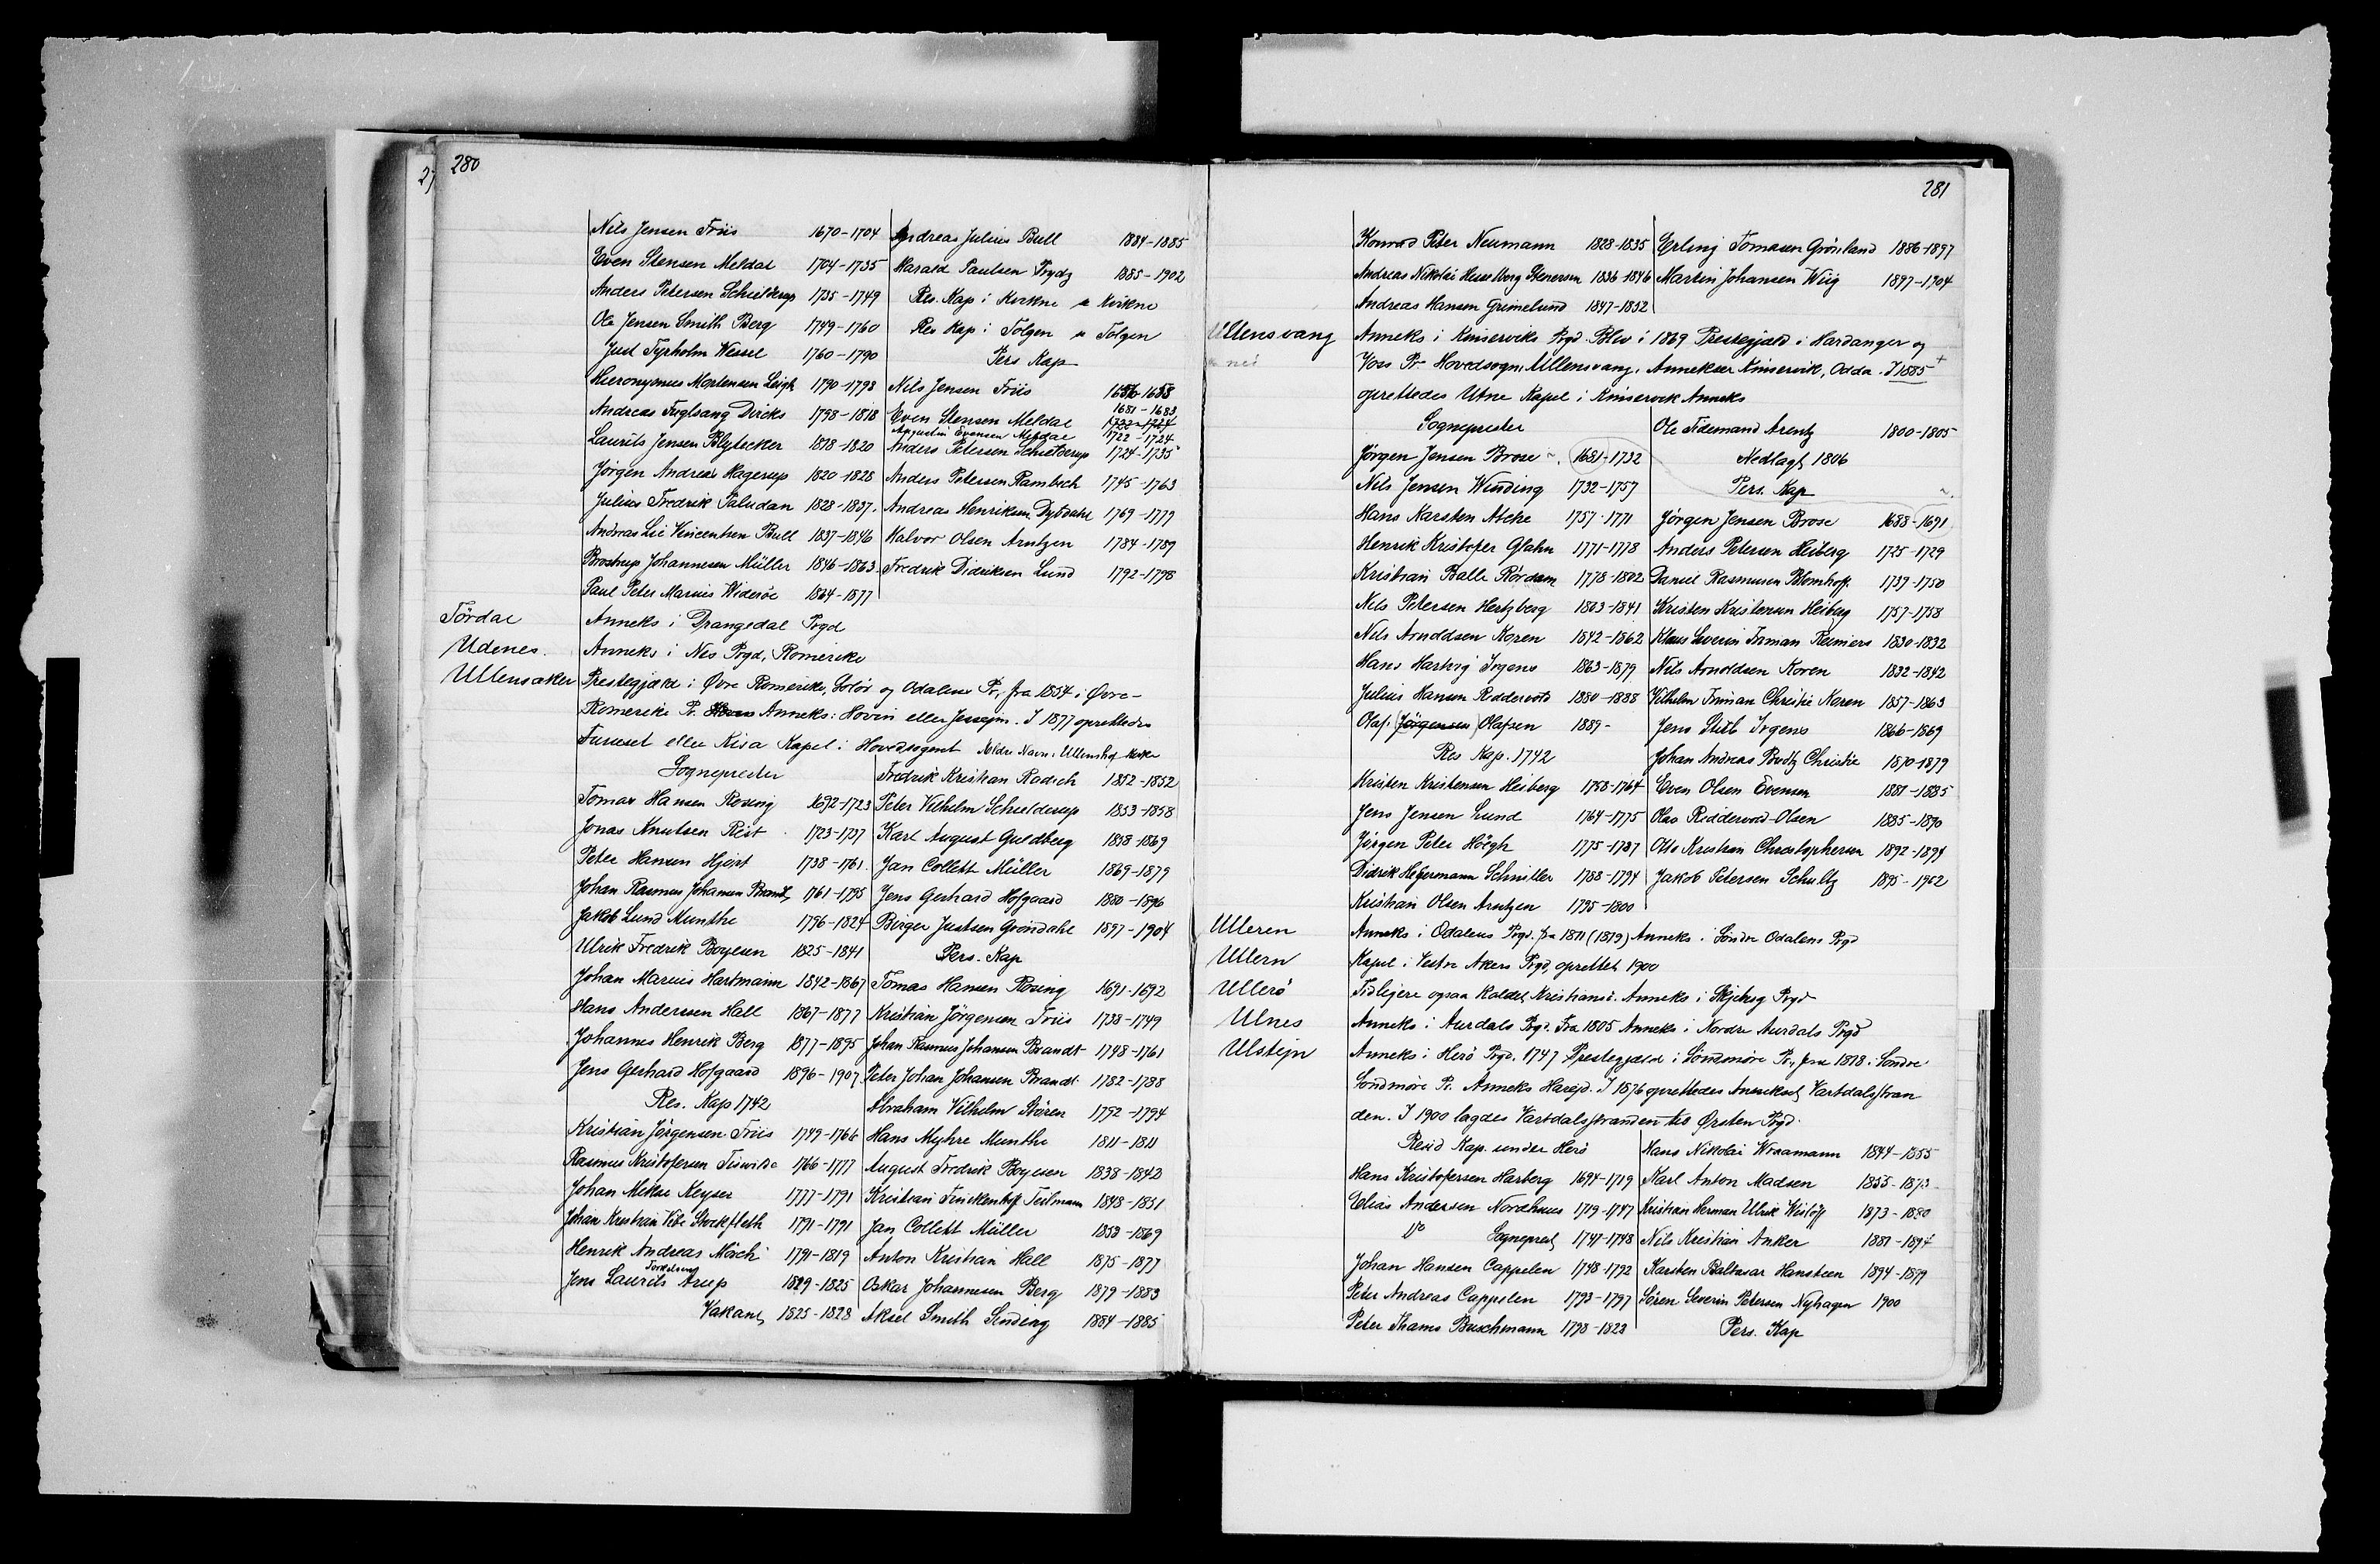 280
Nils Jensen Friis 1670-1704
Even Stensen Meldal 1704-1735
Anders Petersen Schielderup 1735-1749
Ole Jensen Smith Berg 1749-1760
Just Tyrholm Wessel 1760-1790
Hieronymus Mortensen Leigh 1790-1798
Andreas Fuglsang Dircks 1798-1818
Laurits Jensen Blytecker 1818-1820
Jörgen Andreas Hagerup 1820-1828
Julius Fredrik Paludan 1828-1837
Andreas Lie Vincentsen Bull 1837-1846
Brostrup Johannesen Müller 1846-1863
Paul Peter Marius Wideröe 1864-1877
Andreas Julius Bull 1884-1885
Harald Paulsen Prydz 1885-1902
Res. Kap i Kvikne se Kvikne
Res Kap i Tolgen se Tolgen
Pers Kap
Nils Jensen Friis
1681-1683
Even Stensen Meldal
Augustin Evensen Meldal 1722-1724
Anders Petersen Schielderup 1724-1735
Anders Petersen Rambech 1745-1763
Andreas Henriksen Dybdahl 1769-1779
Halvor Olsen Arntzen 1784-1789
Fredrik Didriksen Lund 1792-1798
Tördal Anneks i Drangedal Prgd
Udenes. Anneks i Nes Prgd, Romerike
Ullensaker Prestegjæld i Øvre Romerike, Solör og Odalens Pr, fra 1854 i Øvre-
Romerike Pr. Anneks: Hovin eller Jessejm. I 1877 oprettedes
Furuset eller Kisa Kapel i Hovedsognet Ældre Navn: Ullinshof Kirke
Sogneprester
Tomas Hansen Rosing 1692-1723
Jonas Knutsen Rist 1723-1737
Peter Hansen Hjort 1738-1761
Johan Rasmus Johansen Brandt 1761-1795
Jakob Lund Munthe 1796-1824
Ulrik Fredrik Boyesen 1825-1841
Johan Marius Hartmann 1842-1867
Hans Anderssen Hall 1867-1877
Johannes Henrik Berg 1877-1895
Jens Gerhard Hofgaard 1896-1907
Res. Kap 1742
Kristian Jörgensen Friis 1749-1766
Rasmus Kristofersen 1766-1777
Johan Mekse Keyser 1777-1791
Johan Kristian Vibe Stockfleth 1791-1791
Henrik Andreas Mösch 1791-1819
Jens Laurits Arup 1819-1825
Vakant 1825-1828
Fredrik Kristian Radich 1852-1852
Peter Vilhelm Schielderup 1853-1858
Karl August Guldberg 1858-1869
Jan Collett Müller 1869-1879
Jens Gerhard Hofgaard 1880-1896
Birger Justsen Gröndahl 1897-1904
Pers. Kap
Tomas Hansen Rosing 1691-1692
Kristian Jörgensen Friis 1738-1749
Johan Rasmus Johansen Brandt 1748-1761
Peter Johan Johansen Brandt 1782-1788
Abraham Vilhelm Stören 1792-1794
Hans Myhre Munthe 1811-1811
August Fredrik Boyesen 1838-1842
Kristian Teilmann 1848-1851
Jan Collett Müller 1853-1869
Anton Kristian Hall 1875-1877
Oskar Johannesen Berg 1879-1883
Aksel Smith Sinding 1884-1885
281
Konrad Peter Neumann 1828-1835
Andreas Nikolai Hesselberg Stenersen 1836-1846
Andreas Hansen Grimelund 1847-1852
Erling Tomasen Grönland 1886-1897
Martin Johansen Wiig 1897-1904
Ullensvang Anneks i Kinserviks Prgd. Blev i 1869 Prestegjæld i Hardanger og
Voss Pr Hovedsogn, Ullensvang. Annekser Kinservik, Odda. I 1885
oprettedes Utne Kapel i Kinservik Anneks
Sogneprester
Jörgen Jensen Brose 1681-1732
Nils Jensen Winding 1732-1757
Hans Karsten Atche 1757-1771
Henrik Kristofer Glahn 1771-1778
Kristian Balle Rördam 1778-1802
Nils Petersen Hertzberg 1803-1841
Nils Arnoldsen Koren 1842-1862
Hans Hartvig Irgens 1863-1879
Julius Hansen Riddervold 1880-1888
Olaf (Jörgensen) Olafsen 1889-
Res Kap. 1742
Kristen Kristensen Heiberg 1758-1764
Jens Jensen Lund 1764-1775
Jörgen Peter Höegh 1775-1787
Didrik Hegermann Schnitler 1788-1794
Kristian Olsen Arntzen 1795-1800
Ole Tidemand Arentz 1800-1805
Nedlagt 1806
Pers. Kap
Jörgen Jensen Brose 1688-1691
Anders Petersen Heiberg 1725-1729
Daniel Rasmusen Blomhoff 1737-1750
Kristen Kristensen Heiberg 1757-1758
Klaus Severin Irman Reimers 1830-1832
Nils Arnoldsen Koren 1832-1842
Vilhelm Friman Christie Koren 1857-1863
Jens Stub Irgens 1866-1869
Johan Andreas Budtz Christie 1870-1879
Even Olsen Evensen 1881-1885
Olav Riddervold Olsen 1885-1890
Otto Kristian Christophersen 1892-1894
Jakob Petersen Schultz 1895-1902
Ulleren Anneks i Odalens Prgd. fra 1811 (1819) Anneks i Söndre Odalens Prgd
Ullern Kapel i Vestre Akers Prgd, oprettet 1900
Ullerö Tidligere ogsaa kaldet Kristiansö. Anneks i Skjeberg Prgd
Ulnes Anneks i Aurdals Prgd. Fra 1805 Anneks i Nordre Aurdals Prgd
Ulstejn Anneks i Herö Prgd. 1747 Prestegjæld i Söndmöre Pr, fra 1818 i Söndre
Söndmöre Pr. Anneks Harejd. I 1876 oprettedes Annekset Vartdalsstran
den. I 1900 lagdes Vartdalsstranden til Ørsten Prgd.
Resid Kap. under Herö
Hans Kristofersen Harberg 1694-1719
Elias Andersen Nordhuus 1719-1747
Sogneprest 1747-1748
Johan Hansen Cappelen 1748-1792
Peter Andreas Cappelen 1793-1797
Peter Thams Buschmann 1798-1823
Hans Nikolai Wraamann 1844-1855
Karl Anton Madsen 1855-1873
Kristian Herman Ulrik Wislöff 1873-1880
Nils Kristian Anker 1881-1894
Karsten Baltasar Hansteen 1894-1899
Sören Severin Petersen Nyhagen 1900
Pers. Kap